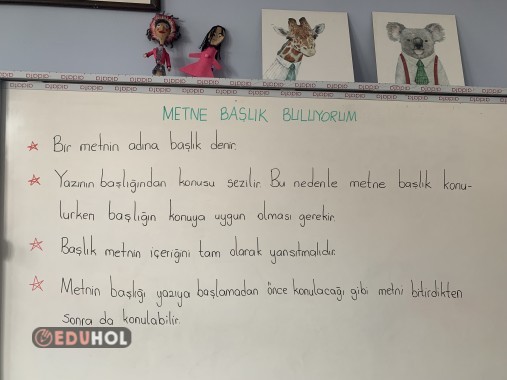 METNE BAŞLIK BULUYORUM
Bir metnin adına başlık denir.
Yazının başlığından konusu sezilir. Bu nedenle metne başlık konu-
lurken başlığın konuya uygun olması gerekir.
Başlık metnin içeriğini tam olarak yansıtmalıdır.
Metnin başlığı yazıya başlamadan önce konulacağı gibi metni bitirdikten
sonra da konulabilir.
EDUHOL